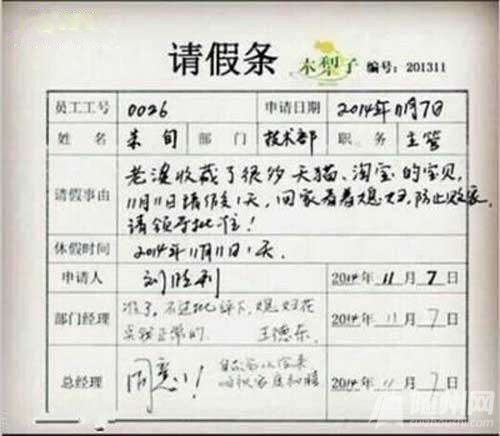 请假条 木犁子 编号：201311
员工工号 0026 申请日期 2014年11月7日
姓名 朱旬 部门 技术部 职务 主管
老婆收藏了很多天猫、淘宝的宝贝，
请假事由 11月11日请假1天，回家看着媳妇，防止败家，
请领导批准！
休假时间 2014年11月11日1天。
申请人 刘胜利 2014年11月7日
准了，不过批评下，媳妇花
部门经理 2014年11月7日
实钱正常的。 王德东
总经理 同意！ 2014年11月7日
随州网
suizhoushi.com